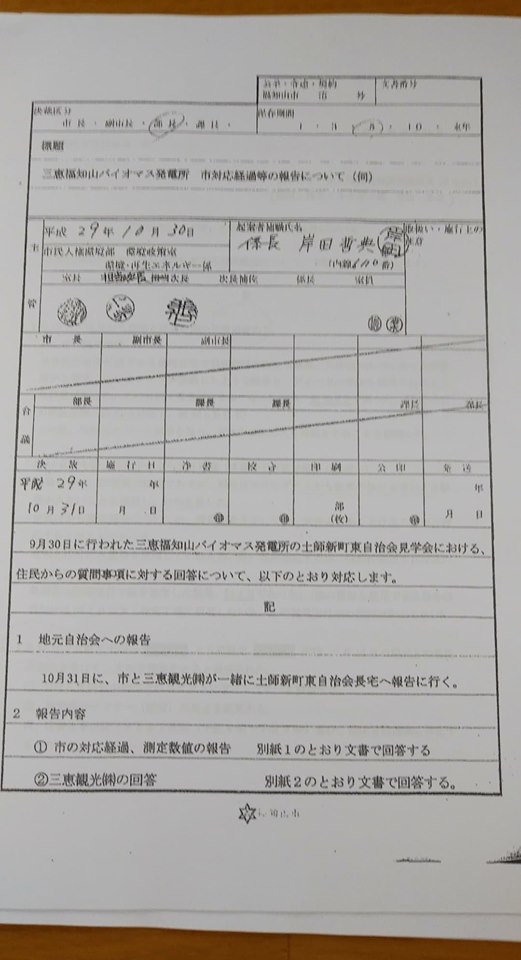 条例・令達・規約 文書番号
福知山市 第 号
決裁区分 保存期間
市長・副市長・部長・課長・ 1・3・5・10・永年
標題
三恵福知山バイオマス発電所 市対応経過等の報告について（伺）
平成29年10月30日 起案者補職氏名 取扱い・施行上の注意
主管
市民人権環境部 環境政策室 係長 岸田哲典
環境・再生エネルギー係 （内線 番）
室長 次長 次長補佐 係長 室員
市長 副市長 副市長
合議
部長 課長 課長 課長 課長
決裁 施行日 浄書 校合 印刷 公印 発送
平成29年 年 年
10月31日 月 日 印 印 部(枚) 印 月 日
9月30日に行われた三恵福知山バイオマス発電所の土師新町東自治会見学会における、
住民からの質問事項に対する回答について、以下のとおり対応します。
記
1 地元自治会への報告
10月31日に、市と三恵観光㈱が一緒に土師新町東自治会長宅へ報告に行く。
2 報告内容
① 市の対応経過、測定数値の報告 別紙1のとおり文書で回答する
②三恵観光㈱の回答 別紙2のとおり文書で回答する。